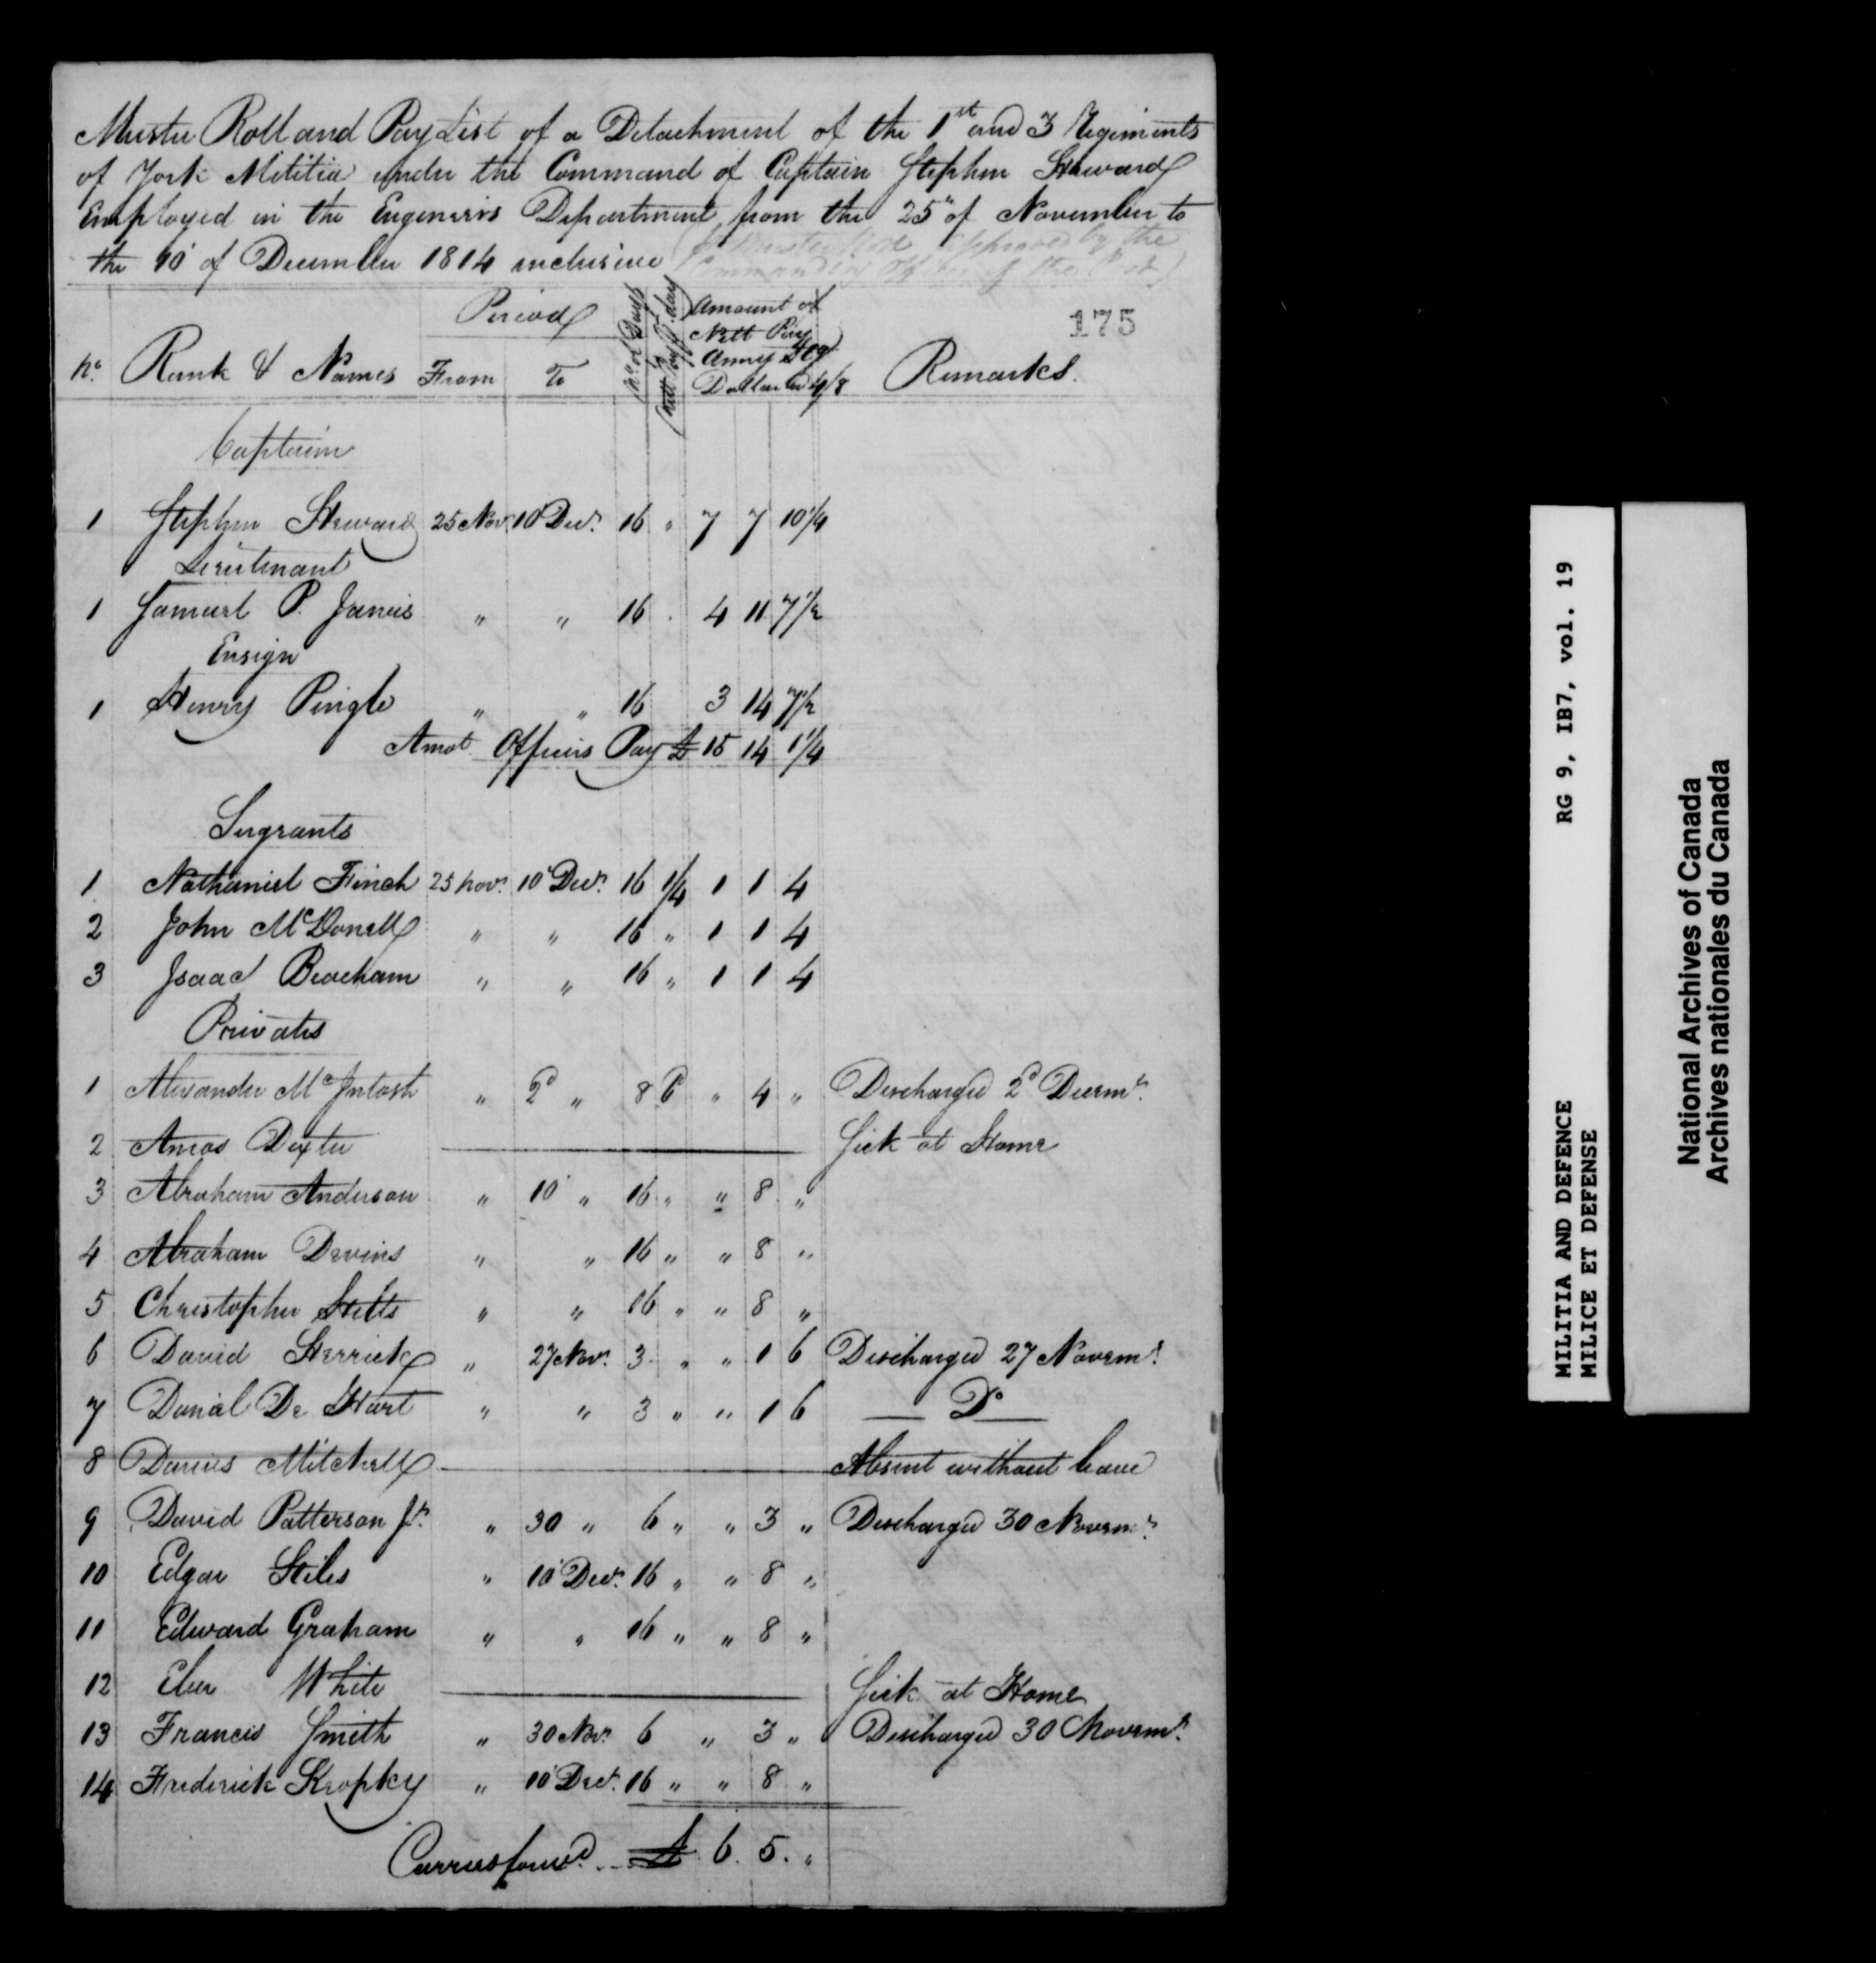 Muster Roll and Pay List of a Detachment of the 1st and 3 Regiments
of York Militia under the Command of Captain Stephen Heward
Employed in the Engeneirs Department from the 25th of November to
the 10th of December 1814 inclusive
approved by the
Commanding Officer of the
175
No. Rank & Names Period From To No. of Days Nett Pay Pr. day Amount of Nett Pay Army Dollar @ 4/8 Remarks.
Captain
1 Stephen Heward 25 Novr. 10 Decr. 16 " 7 7 10 1/4
Lieutenant
1 Samuel P. Jarvis " " 16 . 4 11 7 1/2
Ensign
1 Henry Pingle " " 16 3 14 7 1/2
Amot Officers Pay £ 15 14 1 1/4
Sergeants
1 Nathaniel Finch 25 Novr. 10 Decr. 16 1/4 1 1 4
2 John McDonell " " 16 " 1 1 4
3 Isaac Beacham " " 16 " 1 1 4
Privates
1 Alexander McIntosh " 2d " 8 6 " 4 " Discharged 2d Decemr.
2 Amos Dexter Sick at Home
3 Abraham Anderson " 10 " 16 " " 8 "
4 Abraham Devins " " 16 " " 8 "
5 Christopher Stilts " " 16 " " 8 "
6 David Herrick " 27 Novr. 3 " " 1 6 Discharged 27 Novemr.
7 Danial De Hart " " 3 " " 1 6 Do
8 Darius Mitchell Absent without leave
9 David Patterson Jr. " 30 " 6 " " 3 " Discharged 30 Novemr.
10 Edgar Stiles " 10 Decr. 16 " " 8 "
11 Edward Graham " " 16 " " 8 "
12 Eber White Sick at Home
13 Francis Smith " 30 Novr. 6 " 3 " Discharged 30 Novemr.
14 Frederick Kropky " 10 Decr. 16 " " 8 "
Carried forwd. £ 6. 5. "
MILITIA AND DEFENCE RG 9, IB7, vol. 19
MILICE ET DEFENSE
National Archives of Canada
Archives nationales du Canada